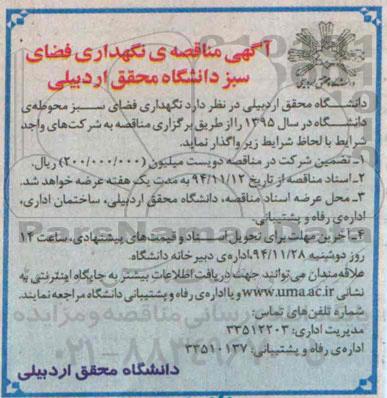 آگهی مناقصه ی نگهداری فضای
سبز دانشگاه محقق اردبیلی
دانشگاه محقق اردبیلی در نظر دارد نگهداری فضای سبز محوطه‌ی
دانشگاه در سال ۱۳۹۵ را از طریق برگزاری مناقصه به شرکت‌های واجد
شرایط با لحاظ شرایط زیر واگذار نماید.
۱ـ تضمین شرکت در مناقصه دویست میلیون (۲۰۰/۰۰۰/۰۰۰) ریال.
۲ـ اسناد مناقصه از تاریخ ۹۴/۱۱/۱۲ به مدت یک هفته عرضه خواهد شد.
۳ـ محل عرضه اسناد مناقصه، دانشگاه محقق اردبیلی، ساختمان اداری،
اداره‌ی رفاه و پشتیبانی.
۴ـ آخرین مهلت برای تحویل اسناد و قیمت‌های پیشنهادی، ساعت ۱۲
روز دوشنبه ۹۴/۱۱/۲۸، اداره‌ی دبیرخانه دانشگاه.
علاقه‌مندان می‌توانند جهت دریافت اطلاعات بیشتر به جایگاه اینترنتی به
نشانی www.uma.ac.ir و یا اداره‌ی رفاه و پشتیبانی دانشگاه مراجعه نمایند.
شماره تلفن‌های تماس:
مدیریت اداری: ۳۳۵۱۲۲۰۳
اداره‌ی رفاه و پشتیبانی: ۳۳۵۱۰۱۳۷
دانشگاه محقق اردبیلی